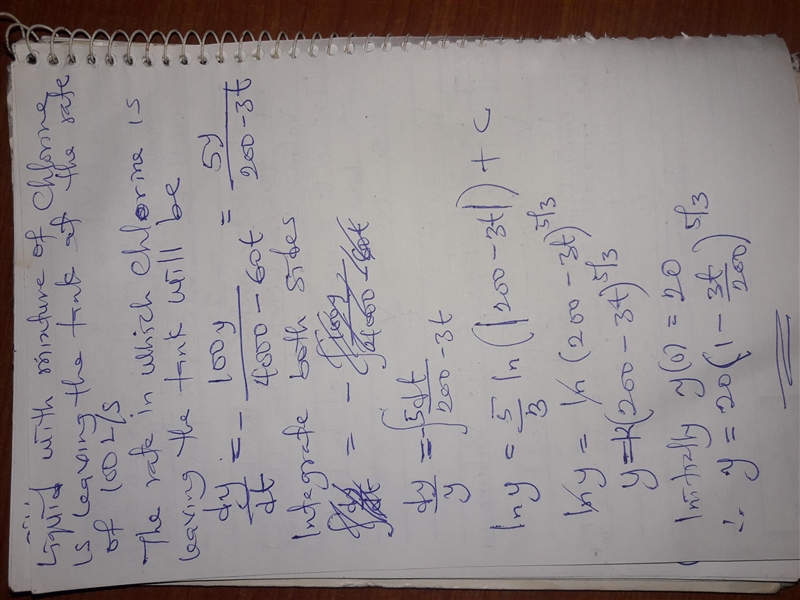 Liquid with mixture of chlorine
is leaving the tank at the rate
of 100 L/s
The rate in which chlorine is
leaving the tank will be
dy/dt = - 100y/4000-60t = 5y/200-3t
Integrate both sides
= -
dy/y = -∫5dt/200-3t
ln y = 5/3 ln(|200-3t|) + C
ln y = ln (200-3t)^5/3
y = k(200-3t)^5/3
Initially y(0) = 20
∴ y = 20(1 - 3t/200)^5/3